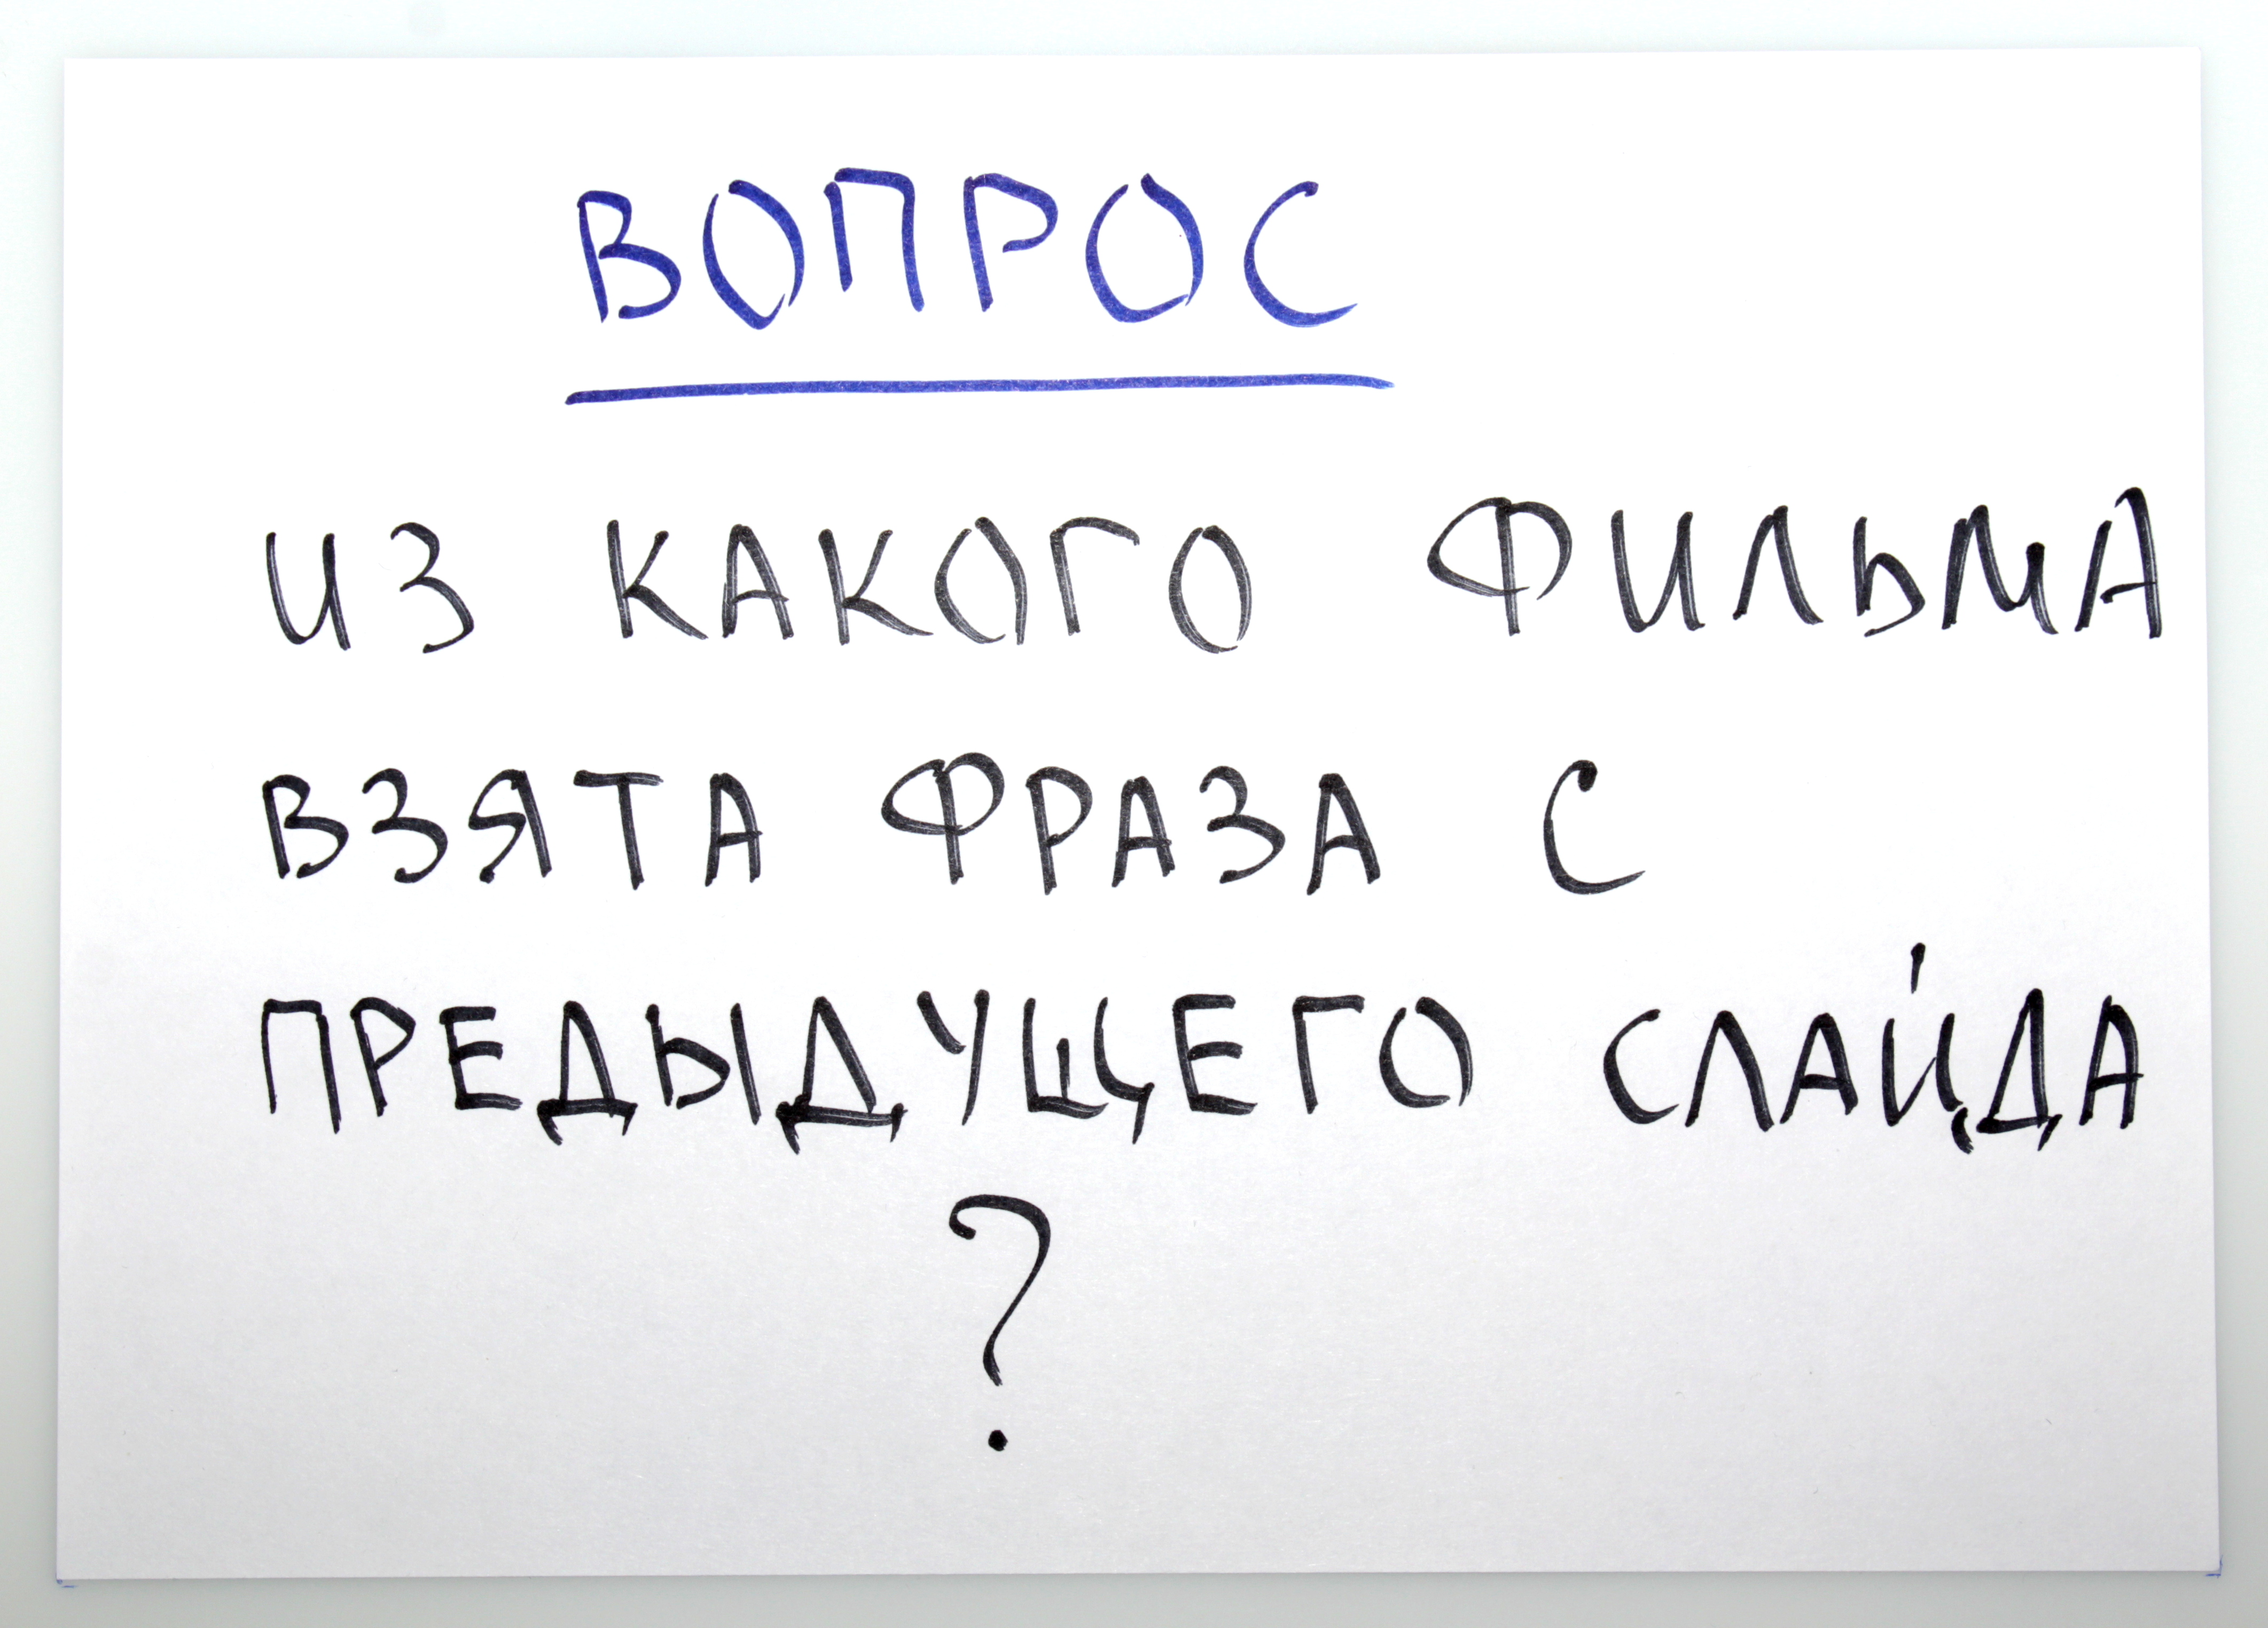 ВОПРОС
ИЗ КАКОГО ФИЛЬМА
ВЗЯТА ФРАЗА С
ПРЕДЫДУЩЕГО СЛАЙДА
?